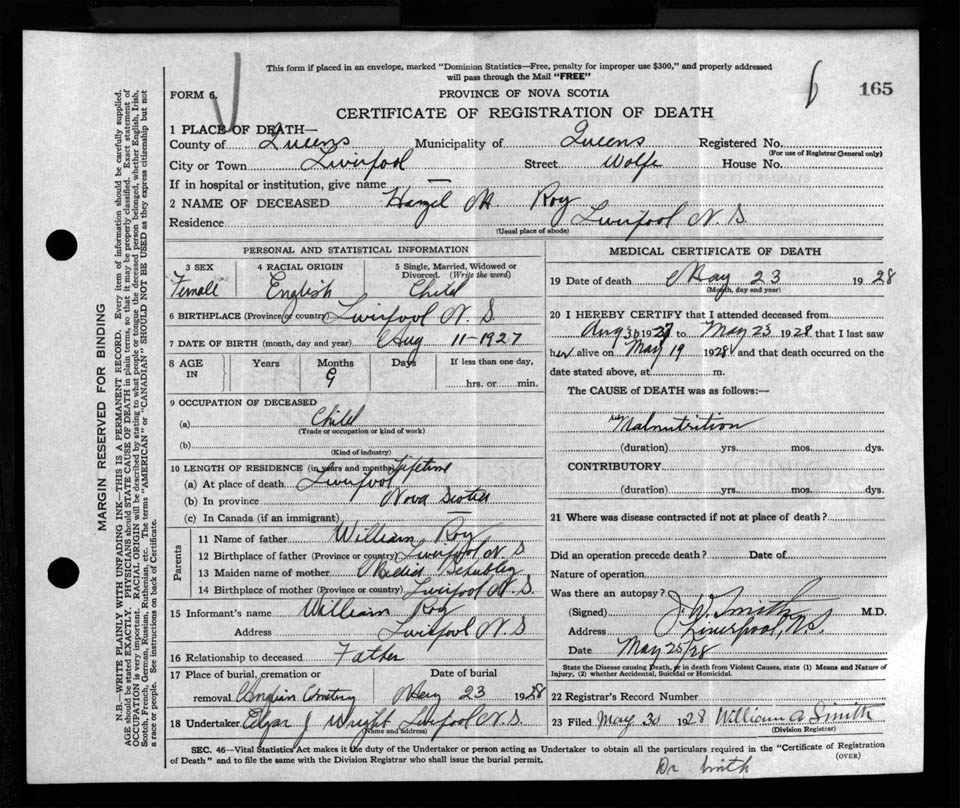 This form if placed in an envelope, marked "Dominion Statistics—Free, penalty for improper use $300," and properly addressed
will pass through the Mail "FREE"
FORM 6.
PROVINCE OF NOVA SCOTIA
165
CERTIFICATE OF REGISTRATION OF DEATH
1 PLACE OF DEATH—
County of Queens Municipality of Queens Registered No.
(For use of Registrar General only)
City or Town Liverpool Street Wolfe House No.
If in hospital or institution, give name —
2 NAME OF DECEASED Hazel M Roy
Residence Liverpool N. S.
(Usual place of abode)
PERSONAL AND STATISTICAL INFORMATION
3 SEX 4 RACIAL ORIGIN 5 Single, Married, Widowed or
Divorced. (Write the word)
Female English Child
6 BIRTHPLACE (Province or country) Liverpool N. S.
7 DATE OF BIRTH (month, day and year) Aug 11-1927
8 AGE IN Years Months Days If less than one day,
9
hrs. or min.
9 OCCUPATION OF DECEASED
(a) Child
(Trade or occupation or kind of work)
(b)
(Kind of industry)
10 LENGTH OF RESIDENCE (in years and months) Lifetime
(a) At place of death Liverpool
(b) In province Nova Scotia
(c) In Canada (if an immigrant) —
Parents
11 Name of father William Roy
12 Birthplace of father (Province or country) Liverpool N S
13 Maiden name of mother
14 Birthplace of mother (Province or country) Liverpool N. S.
15 Informant's name William Roy
Address Liverpool N S
16 Relationship to deceased Father
17 Place of burial, cremation or Date of burial
removal Cemetery May 23 1928
18 Undertaker Edgar J Wright Liverpool N. S.
(Name and address)
MEDICAL CERTIFICATE OF DEATH
19 Date of death May 23 1928
(Month, day and year)
20 I HEREBY CERTIFY that I attended deceased from
Aug 31 1927 to May 23 1928 that I last saw
her alive on May 19 1928 and that death occurred on the
date stated above, at m.
The CAUSE of DEATH was as follows:—
Malnutrition
(duration) yrs. mos. dys.
CONTRIBUTORY
(duration) yrs. mos. dys.
21 Where was disease contracted if not at place of death?
Did an operation precede death? Date of
Nature of operation
Was there an autopsy?
(Signed) J. W. Smith M.D.
Address Liverpool, N.S.
Date May 25/28
State the Disease causing Death, or in death from Violent Causes, state (1) Means and Nature of
Injury, (2) whether Accidental, Suicidal or Homicidal.
22 Registrar's Record Number
23 Filed May 31 1928 William A Smith
(Division Registrar)
SEC. 46—Vital Statistics Act makes it the duty of the Undertaker or person acting as Undertaker to obtain all the particulars required in the "Certificate of Registration
of Death" and to file the same with the Division Registrar who shall issue the burial permit.
(OVER)
Dr Smith
MARGIN RESERVED FOR BINDING
N.B.—WRITE PLAINLY WITH UNFADING INK—THIS IS A PERMANENT RECORD. Every item of information should be carefully supplied.
AGE should be stated EXACTLY. PHYSICIANS should STATE CAUSE OF DEATH in plain terms, so that it may be properly classified. Exact statement of
OCCUPATION is very important. RACIAL ORIGIN will be described by stating to what people or tongue the deceased person belonged, whether English, Irish,
Scotch, French, German, Russian, Ruthenian, etc. The terms "AMERICAN" or "CANADIAN" SHOULD NOT BE USED as they express citizenship but not
a race or people. See instructions on back of Certificate.